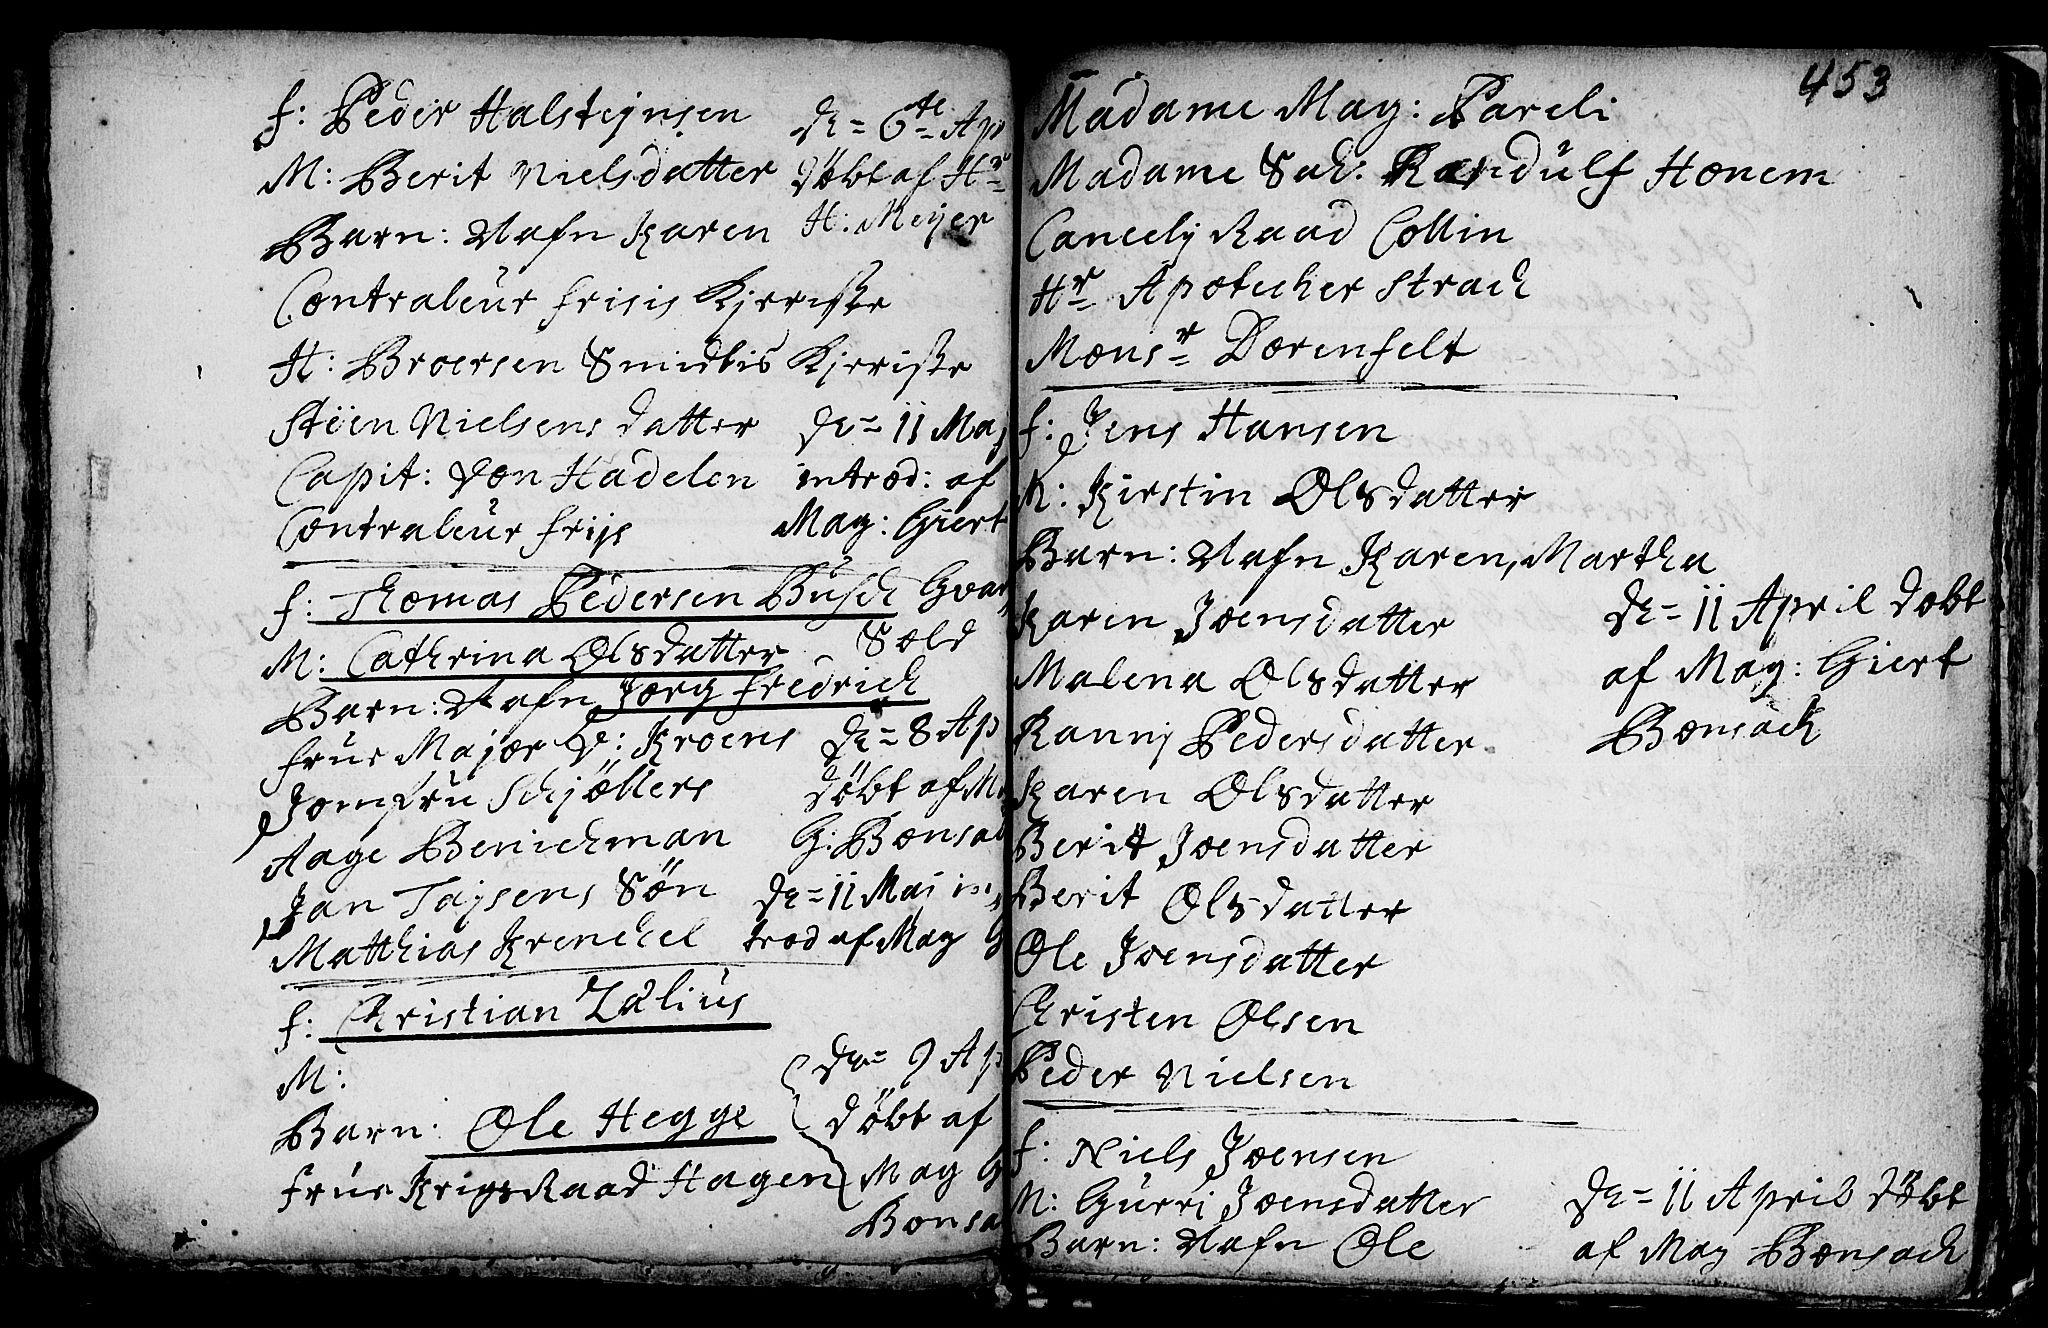 f: Peder Halstejnsen
M: Berit Nielsdatter
Barn: Nafn Karen
de= 6te= Ap
döbt af Hr=
H: Meyer
Contraleur frisis Kjeriste
H: Broersen Smidtis Kjeriste
Stëen Nielsens datter
Capit: von Hadelen
Contraleur frijs
de= 11 Maj
introd: af
Mag: Giert
f: Thomas Pedersen Busch Gvar
M: Cathrina Olsdatter Sold
Barn: Nafn Jorg fredrich
frue Major V: Kroens
Jomfru Schjöllers
Aage Benichman
Jan Tajsens Sön
Matthias Krenckel
de= 8 Ap
döbt af M
G: Bonsa
de= 11 Maj in
trod af Mag G
f: Christian Zälius
M:
Barn: Ole Hegge
frue Krigs Raad Hagen
de= 9 Ap
döbt af
Mag G
Bonsa
453
Madame Mag: Pareli
Madame Sal: Randulf Honem
Cancelij Raad Collin
Hr= Apotecher Strack
Monsr= Dorenfelt
f: Jens Hansen
M: Kirstin Olsdatter
Barn: Nafn Karen, Martha
Karen Joensdatter
Malena Olsdatter
Ranni Pedersdatter
Karen Olsdatter
Berit Joensdatter
Berit Olsdatter
Ole Joensdatter
Christen Olsen
Peder Nielsen
de= 11 April döbt
af Mag: Giert
Bonsach
f: Niels Joensen
M: Gurri Joensdatter
Barn: Nafn Ole
de= 11 April döbt
af Mag Bonsach